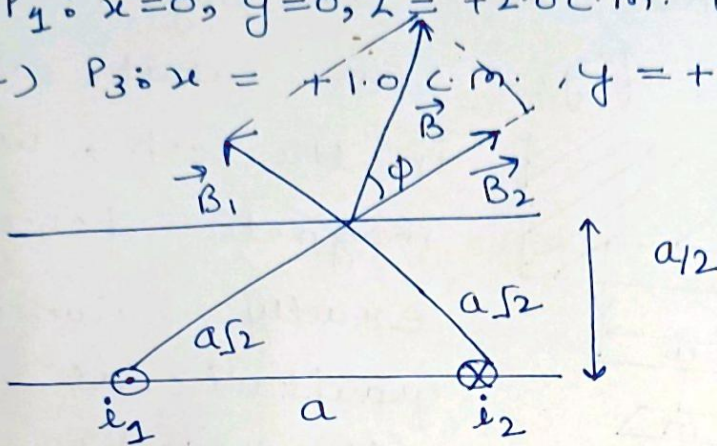 P₁: x=0, y=0, z = +2.0 c.m.
P₃: x = +1.0 c.m. , y = +
B⃗
B⃗₁
ϕ
B⃗₂
a/2
a√2
a√2
i₁
a
i₂